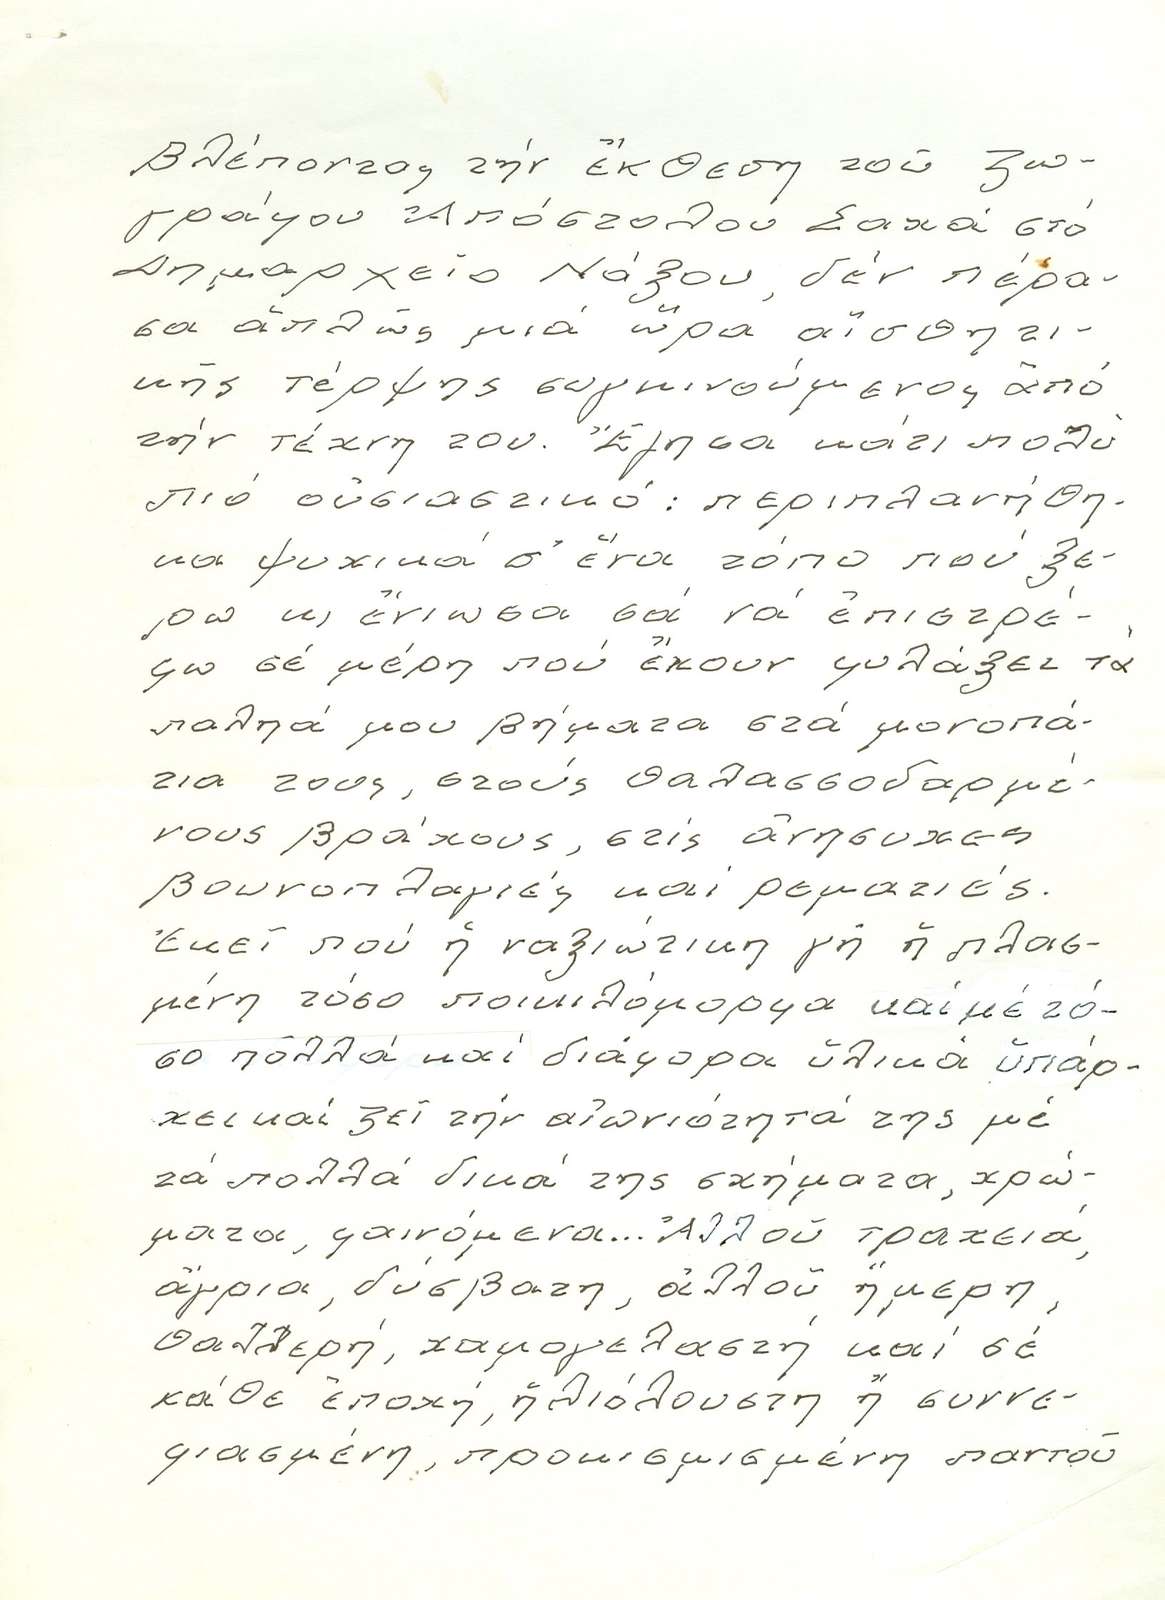 Βλέποντας τήν ἔκθεση τοῦ ζω-
γράφου Ἀπόστολου Σαχά στό
Δημαρχεῖο Νάξου, δέν πέρα-
σα ἁπλῶς μιά ὥρα αἰσθητι-
κῆς τέρψης συγκινούμενος ἀπό
τήν τέχνη του. Ἔζησα κάτι πολύ
πιό οὐσιαστικό: περιπλανήθη-
κα ψυχικά σ' ἕνα τόπο πού ξε-
ρω κι ἔνιωσα σά νά ἐπιστρέ-
φω σέ μέρη πού ἔχουν φυλάξει τά
παληά μου βήματα στά μονοπά-
τια τους, στούς θαλασσοδαρμέ-
νους βράχους, στίς ἀνήσυχες
βουνοπλαγιές καί ρεματιές.
Ἐκεῖ πού ἡ ναξιώτικη γῆ ἡ πλασ-
μένη τόσο ποικιλόμορφα καί μέ τό-
σο πολλά καί διάφορα ὑλικά ὑπάρ-
χει καί ζεῖ τήν αἰωνιότητά της μέ
τά πολλά δικά της σχήματα, χρώ-
ματα, φαινόμενα... Ἀλλοῦ τραχειά,
ἄγρια, δύσβατη, ἀλλοῦ ἥμερη,
θαλλερή, χαμογελαστή καί σέ
κάθε ἐποχή, ἡλιόλουστη ἤ συννε-
φιασμένη, προικισμένη παντοῦ